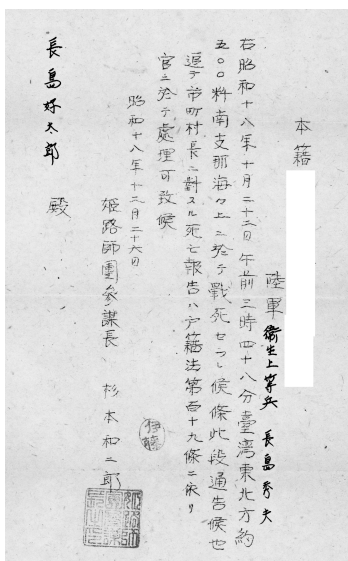 本籍
陸軍衛生上等兵 長島秀夫
右昭和十八年十月二十二日午前三時四十八分臺湾東北方約
五〇〇粁南支那海々上ニ於テ戰死セラレ候條此段通告候也
追テ市町村長ニ對スル死亡報告ハ戸籍法第百十九條ニ依リ
官ニ於テ處理可致候
昭和十八年十二月二十六日
姫路師團參謀長 杉本和二郎
長島好太郎 殿